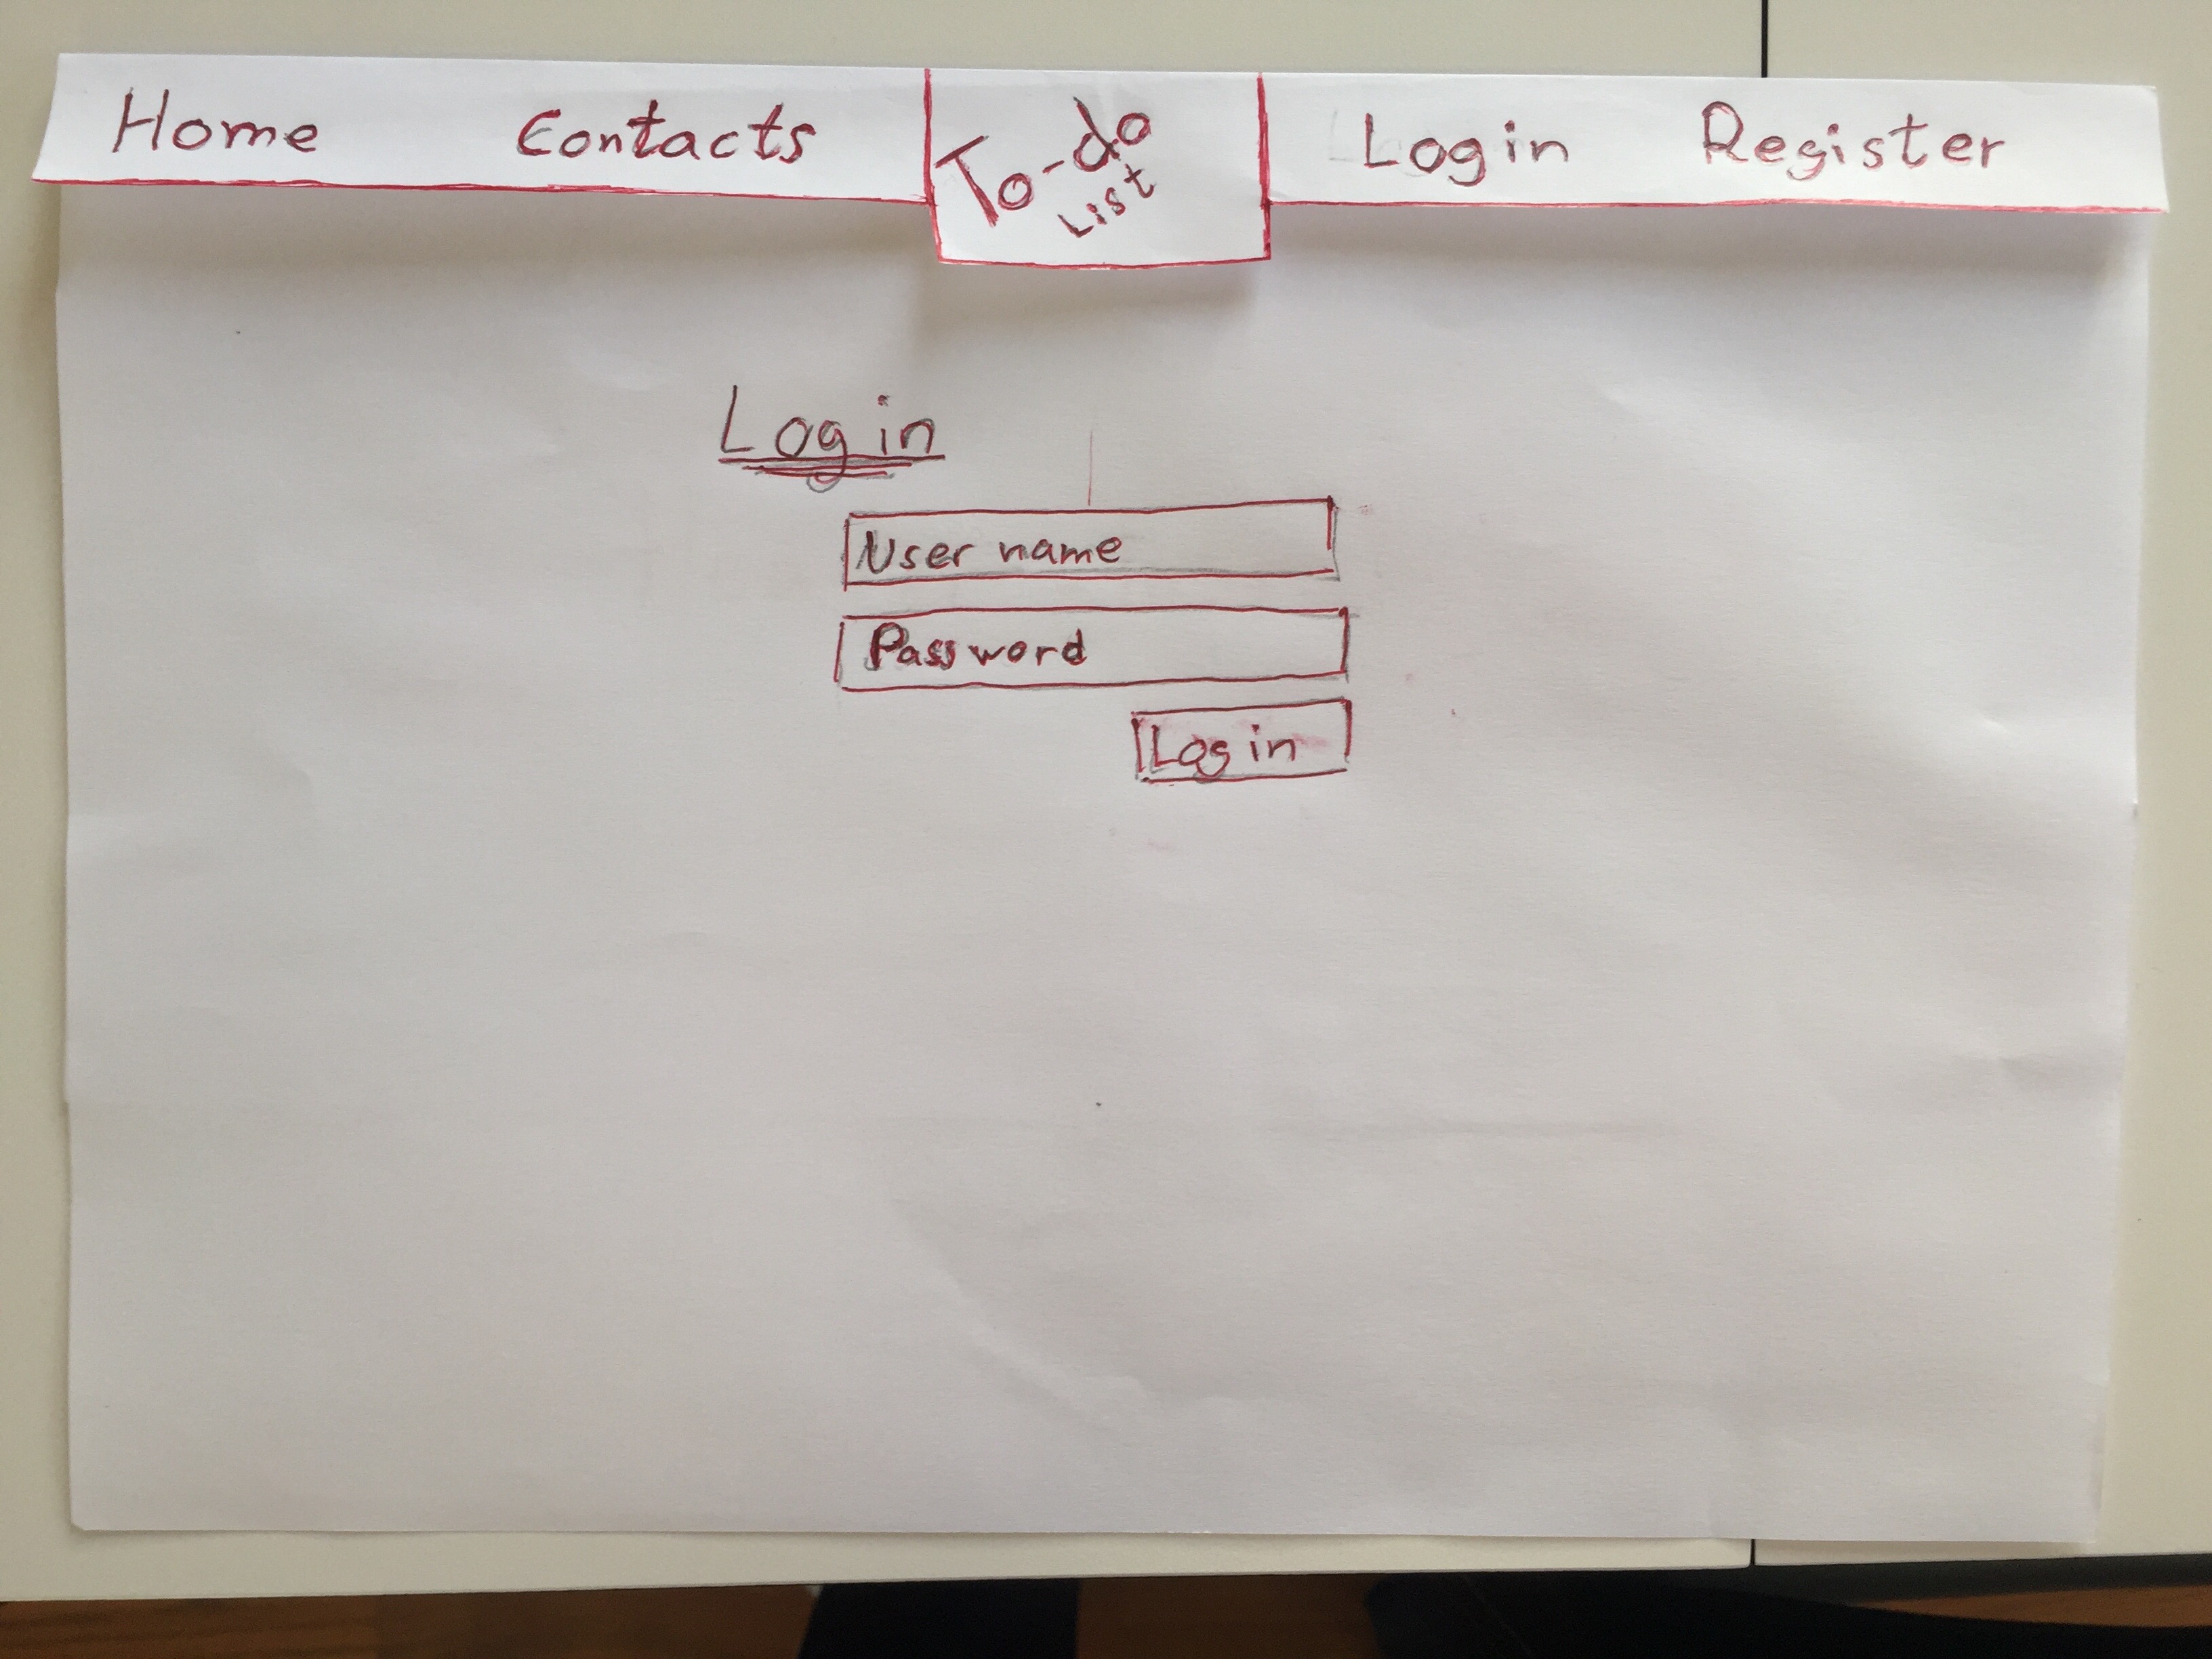 Home Contacts To-do List Login Register
Login
User name
Password
Login